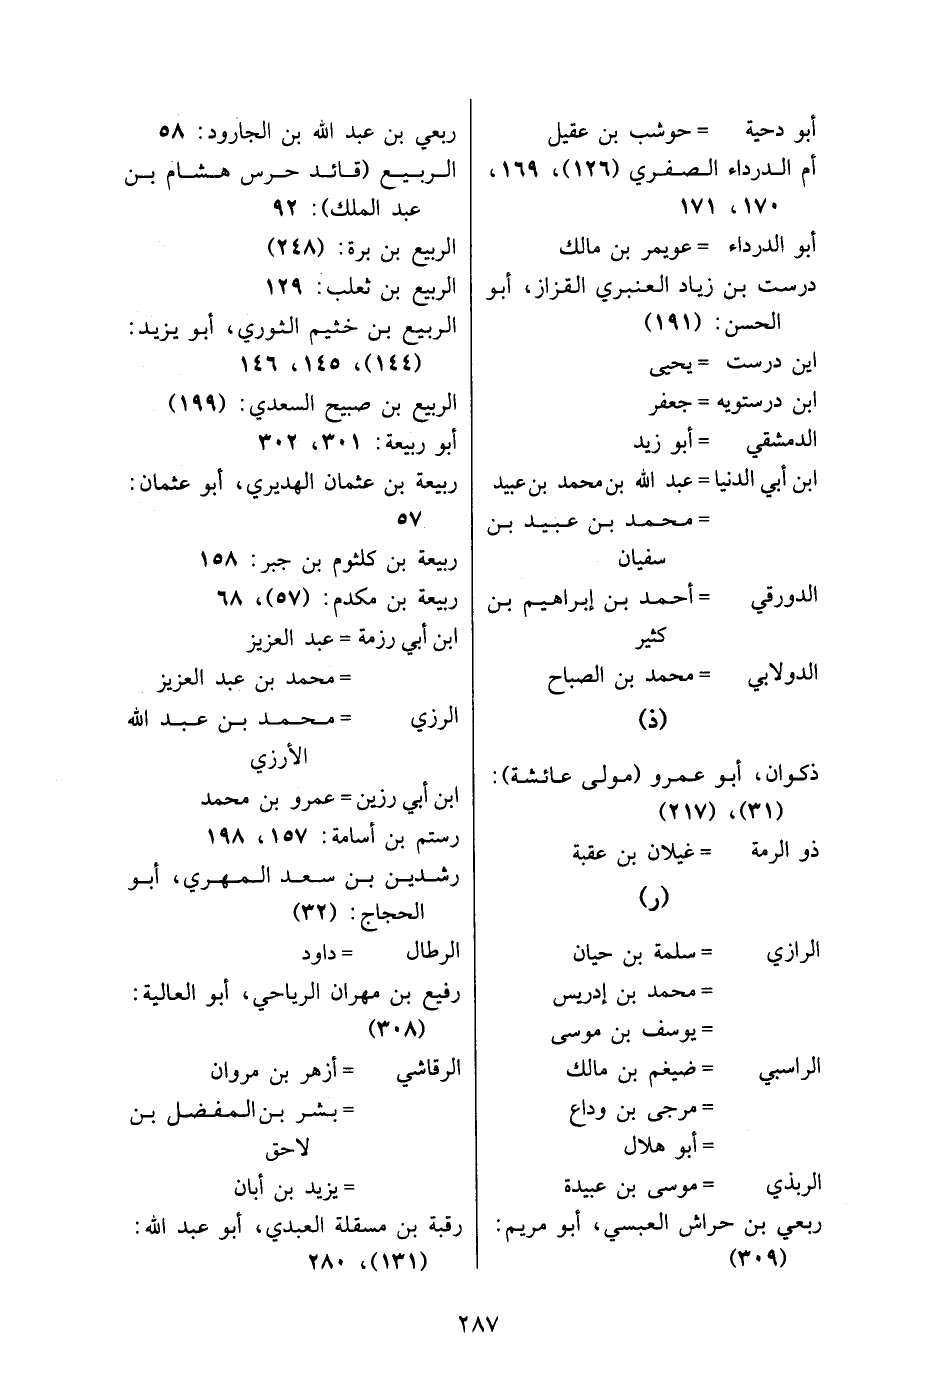 أبو دحية = حوشب بن عقيل
أم الدرداء الصفري (١٢٦)، ١٦٩،
١٧٠، ١٧١
أبو الدرداء = عويمر بن مالك
درست بن زياد العنبري القزاز، أبو
الحسن: (١٩١)
ابن درست = يحيى
ابن درستويه = جعفر
الدمشقي = أبو زيد
ابن أبي الدنيا = عبد الله بن محمد بن عبيد
= محمد بن عبيد بن
سفيان
الدورقي = أحمد بن إبراهيم بن
كثير
الدولابي = محمد بن الصباح
(ذ)
ذكوان، أبو عمرو (مولى عائشة):
(٣١)، (٢١٧)
ذو الرمة = غيلان بن عقبة
(ر)
الرازي = سلمة بن حيان
= محمد بن إدريس
= يوسف بن موسى
الراسبي = ضيغم بن مالك
= مرجى بن وداع
= أبو هلال
الربذي = موسى بن عبيدة
ربعي بن حراش العبسي، أبو مريم:
(٣٠٩)
ربعي بن عبد الله بن الجارود: ٥٨
الربيع (قائد حرس هشام بن
عبد الملك): ٩٢
الربيع بن برة: (٢٤٨)
الربيع بن ثعلب: ١٢٩
الربيع بن خثيم الثوري، أبو يزيد:
(١٤٤)، ١٤٥، ١٤٦
الربيع بن صبيح السعدي: (١٩٩)
أبو ربيعة: ٣٠١، ٣٠٢
ربيعة بن عثمان الهديري، أبو عثمان:
٥٧
ربيعة بن كلثوم بن جبر: ١٥٨
ربيعة بن مكدم: (٥٧)، ٦٨
ابن أبي رزمة = عبد العزيز
= محمد بن عبد العزيز
الرزي = محمد بن عبد الله
الأرزي
ابن أبي رزين = عمرو بن محمد
رستم بن أسامة: ١٥٧، ١٩٨
رشدين بن سعد المهري، أبو
الحجاج: (٣٢)
الرطال = داود
رفيع بن مهران الرياحي، أبو العالية:
(٣٠٨)
الرقاشي = أزهر بن مروان
= بشر بن المفضل بن
لاحق
= يزيد بن أبان
رقبة بن مسقلة العبدي، أبو عبد الله:
(١٣١)، ٢٨٠
٢٨٧